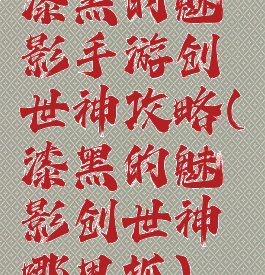 漆黑的魅
影手游创
世神攻略(
漆黑的魅
影创世神
哪里抓)